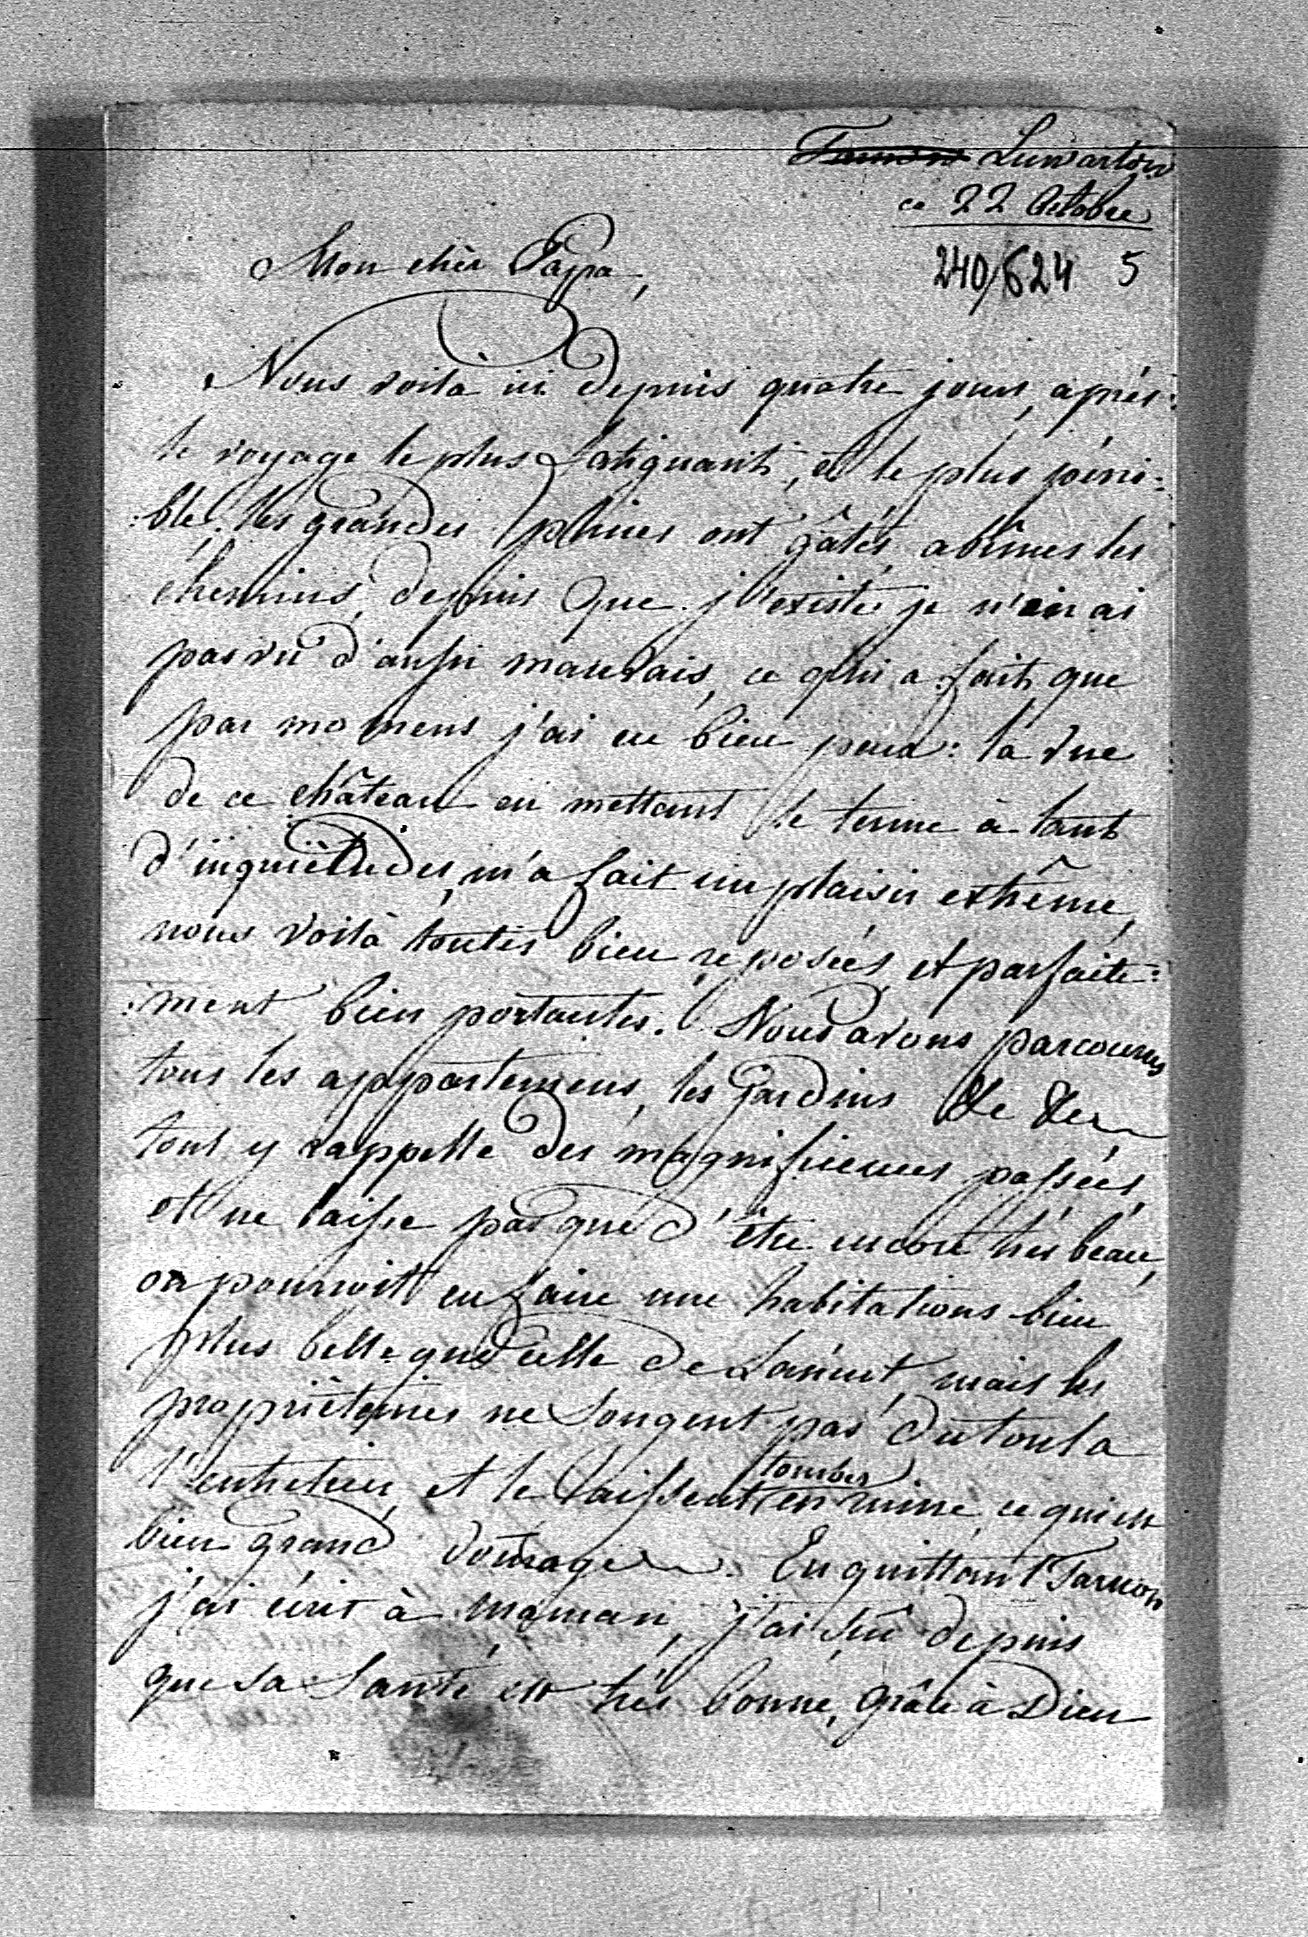 Tarnow Lunarton
ce 22 Octobre
240/624 5
Mon chèr Papa,
Nous voilà ici depuis quatre jours, aprés
le voyage le plus fatiguant, et le plus péni:
:ble. les grandes pluies ont gâtés, abîmés les
chemins, depuis que j'existe je n'en ai
pas vû d'aussi mauvais, ce qui a fait que
par momens j'ai eu bien peur: la vue
de ce château en mettant le terme à tant
d'inquiètudes, m'a fait un plaisir extrême,
nous voilà toutes bien reposées, et parfaite:
:ment bien portantes. Nous avons parcourus
tous les appartemens, les Jardins &c &c
tout y rappelle des magnificences passées,
et ne laisse pas que d'être encore très beau,
on pourroit en faire une habitations bien
plus belle que celle de Lancut, mais les
propriètaires ne songent pas du tout a
l'entretien, et le laissent tomber en ruine, ce qui est
bien grand domage. En quittant Tarnow
j'ai écrit à maman, j'ai sû depuis
que sa santé est très bonne, grâce à Dieu